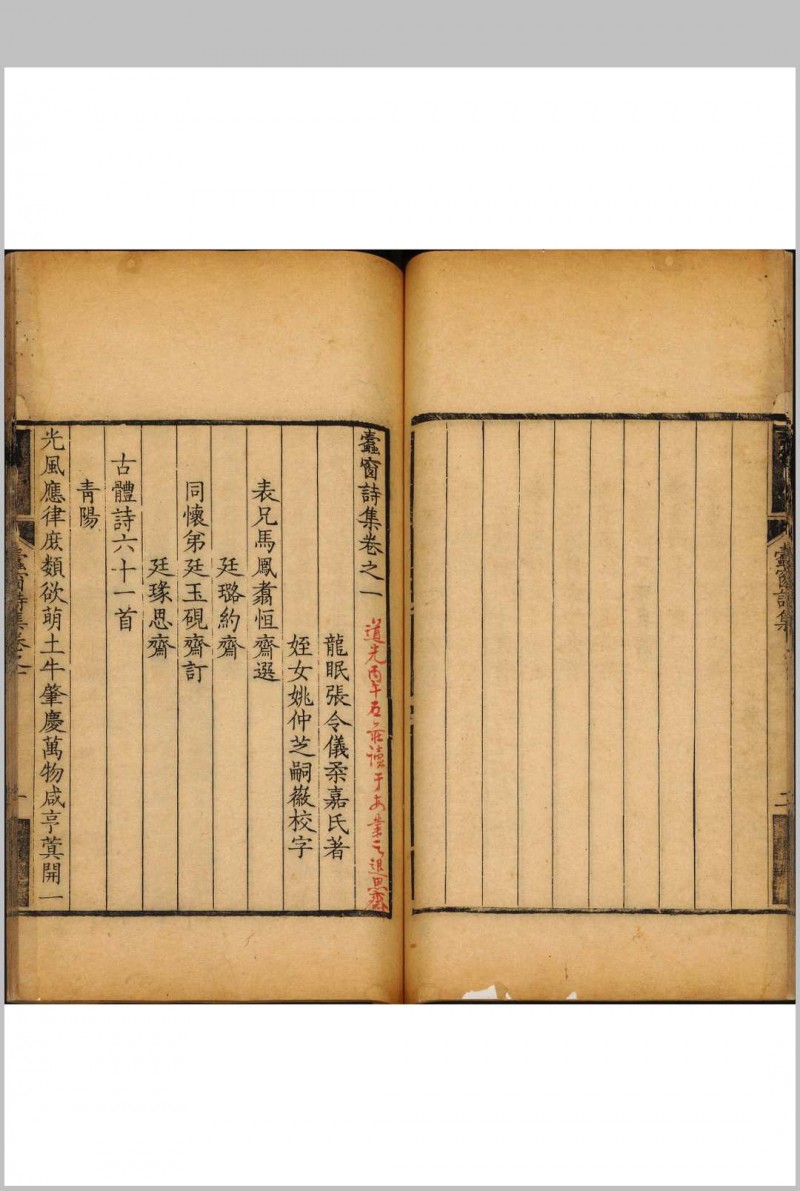 蠹窗詩集
二
蠹窗詩集卷之一
道光丙午石 讀于 業之退思齋
龍眠張令儀柔嘉氏著
姪女姚仲芝嗣徽校字
表兄馬鳳翥恒齋選
廷璐約齋
同懷弟廷玉硯齋訂
廷瑑思齋
古體詩六十一首
青陽
光風應律庶類欲萌土牛肇慶萬物咸亨蓂開一
蠹窗詩集卷之一
一